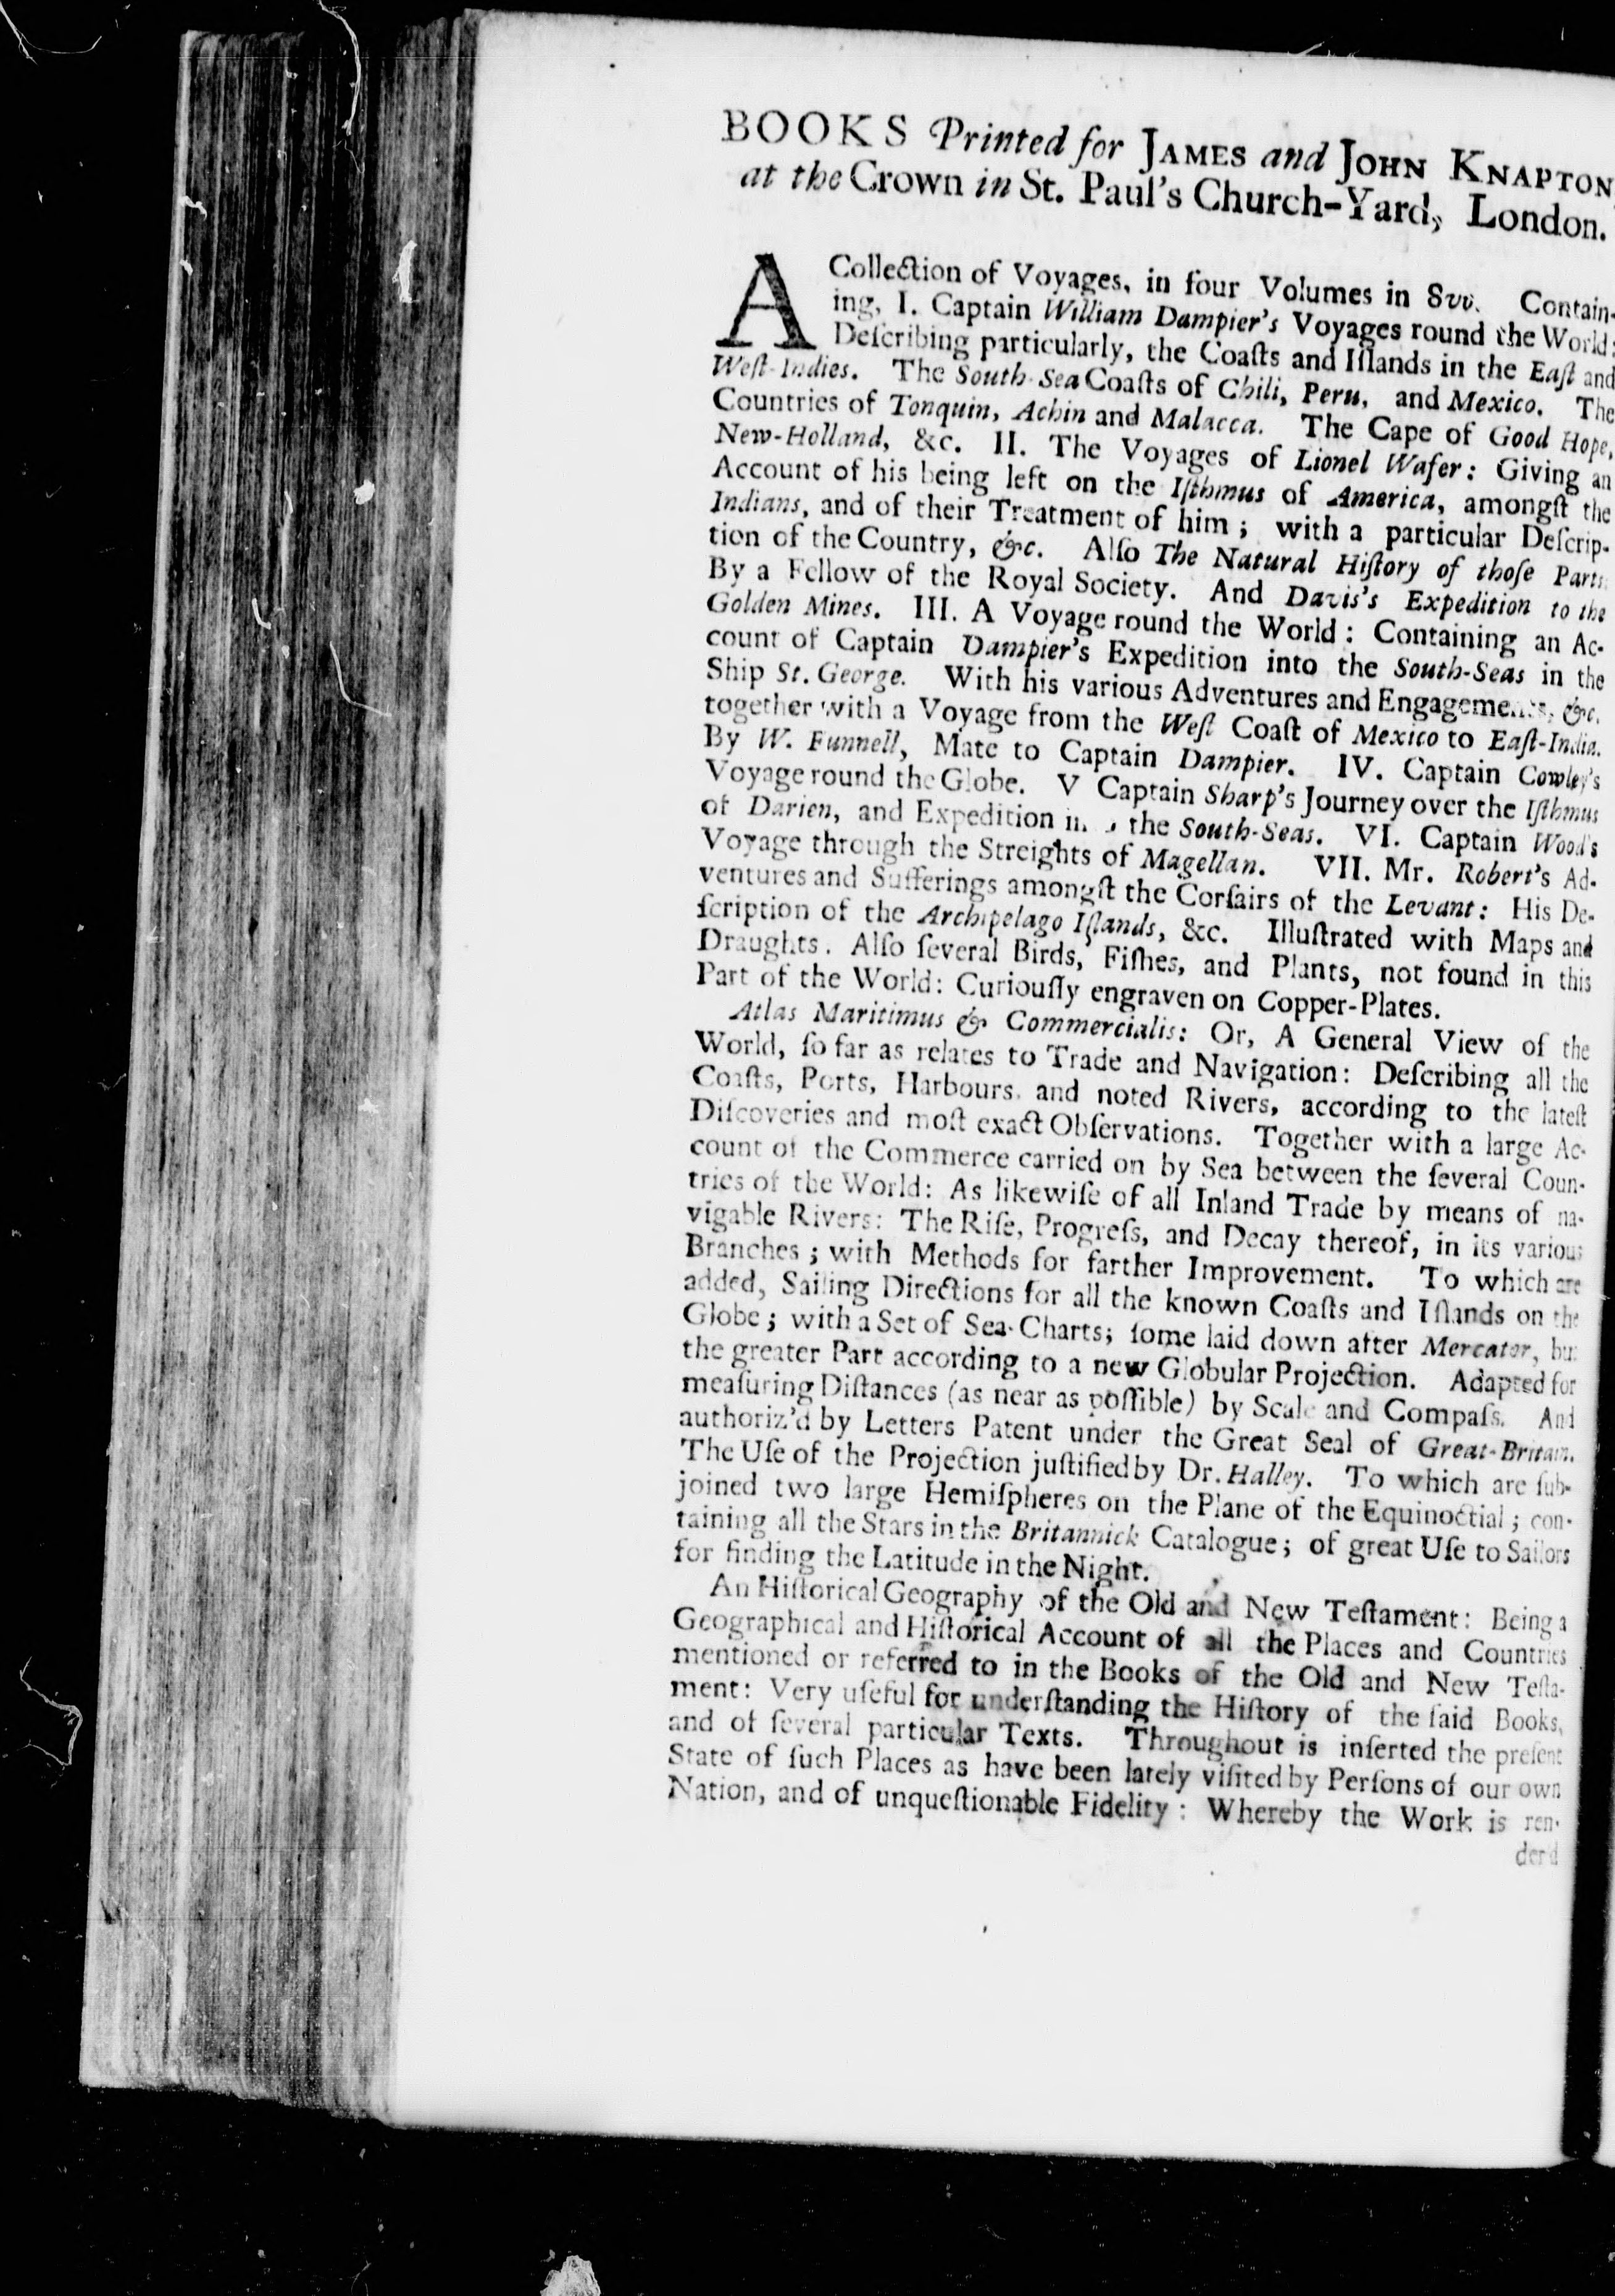 BOOKS Printed for JAMES and JOHN KNAPTON,
at the Crown in St. Paul's Church-Yard, London.
A Collection of Voyages, in four Volumes in 8vo. Contain-
ing, I. Captain William Dampier's Voyages round the World:
Deſcribing particularly, the Coaſts and Iſlands in the Eaſt and
Weſt-Indies. The South-Sea Coaſts of Chili, Peru, and Mexico. The
Countries of Tonquin, Achin and Malacca. The Cape of Good Hope,
New-Holland, &c. II. The Voyages of Lionel Wafer: Giving an
Account of his being left on the Iſthmus of America, amongſt the
Indians, and of their Treatment of him; with a particular Deſcrip-
tion of the Country, &c. Alſo The Natural Hiſtory of thoſe Parts
By a Fellow of the Royal Society. And Davis's Expedition to the
Golden Mines. III. A Voyage round the World: Containing an Ac-
count of Captain Dampier's Expedition into the South-Seas in the
Ship St. George. With his various Adventures and Engagements, &c.
together with a Voyage from the Weſt Coaſt of Mexico to Eaſt-India.
By W. Funnell, Mate to Captain Dampier. IV. Captain Cowley's
Voyage round the Globe. V Captain Sharp's Journey over the Iſthmus
of Darien, and Expedition the South-Seas. VI. Captain Wood's
Voyage through the Streights of Magellan. VII. Mr. Robert's Ad-
ventures and Sufferings amongſt the Corſairs of the Levant: His De-
ſcription of the Archipelago Iſlands, &c. Illuſtrated with Maps and
Draughts. Alſo ſeveral Birds, Fiſhes, and Plants, not found in this
Part of the World: Curiouſly engraven on Copper-Plates.
Atlas Maritimus & Commercialis: Or, A General View of the
World, ſo far as relates to Trade and Navigation: Deſcribing all the
Coaſts, Ports, Harbours, and noted Rivers, according to the lateſt
Diſcoveries and moſt exact Obſervations. Together with a large Ac-
count of the Commerce carried on by Sea between the ſeveral Coun-
tries of the World: As likewiſe of all Inland Trade by means of na-
vigable Rivers: The Riſe, Progreſs, and Decay thereof, in its various
Branches; with Methods for farther Improvement. To which are
added, Sailing Directions for all the known Coaſts and Iſlands on the
Globe; with a Set of Sea-Charts; ſome laid down after Mercator, but
the greater Part according to a new Globular Projection. Adapted for
meaſuring Diſtances (as near as poſſible) by Scale and Compaſs. And
authoriz'd by Letters Patent under the Great Seal of Great-Britain.
The Uſe of the Projection juſtified by Dr. Halley. To which are ſub-
joined two large Hemiſpheres on the Plane of the Equinoctial; con-
taining all the Stars in the Britannick Catalogue; of great Uſe to Sailors
for finding the Latitude in the Night.
An Hiſtorical Geography of the Old and New Teſtament: Being a
Geographical and Hiſtorical Account of all the Places and Countries
mentioned or referred to in the Books of the Old and New Teſta-
ment: Very uſeful for underſtanding the Hiſtory of the ſaid Books,
and of ſeveral particular Texts. Throughout is inſerted the preſent
State of ſuch Places as have been lately viſited by Perſons of our own
Nation, and of unqueſtionable Fidelity: Whereby the Work is ren-
der'd